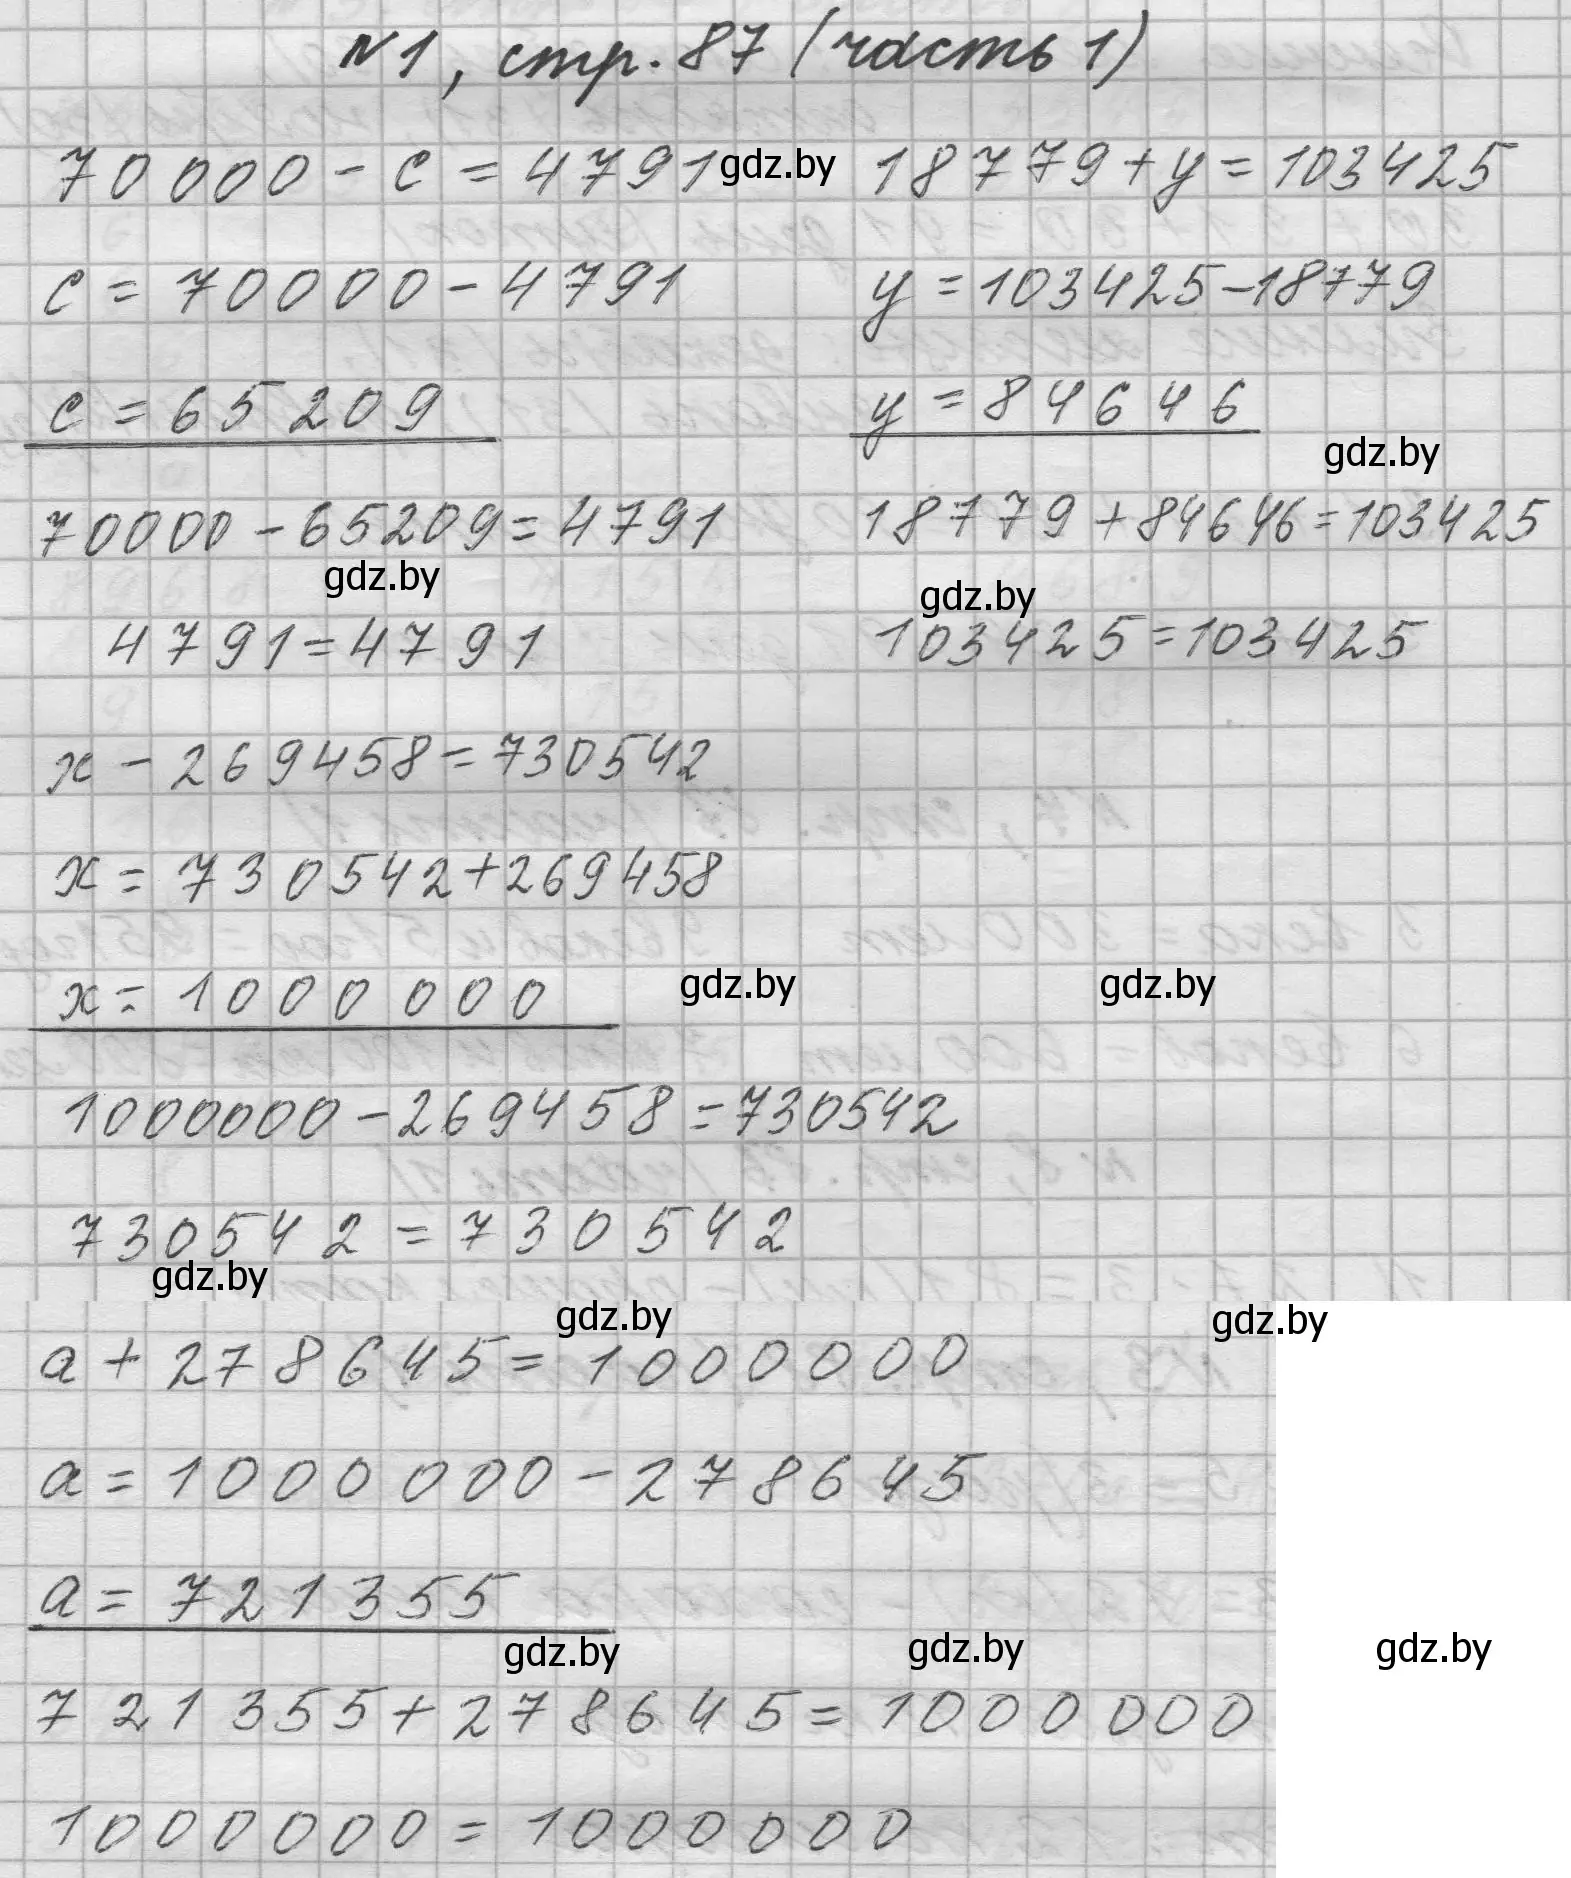 №1, стр. 87 (часть 1)
70000 - с = 4791
с = 70000 - 4791
с = 65209
70000 - 65209 = 4791
4791 = 4791
18779 + y = 103425
y = 103425 - 18779
y = 84646
18779 + 84646 = 103425
103425 = 103425
x - 269458 = 730542
x = 730542 + 269458
x = 1000000
1000000 - 269458 = 730542
730542 = 730542
a + 278645 = 1000000
a = 1000000 - 278645
a = 721355
721355 + 278645 = 1000000
1000000 = 1000000
gdz.by
gdz.by
gdz.by
gdz.by
gdz.by
gdz.by
gdz.by
gdz.by
gdz.by
gdz.by
gdz.by
gdz.by